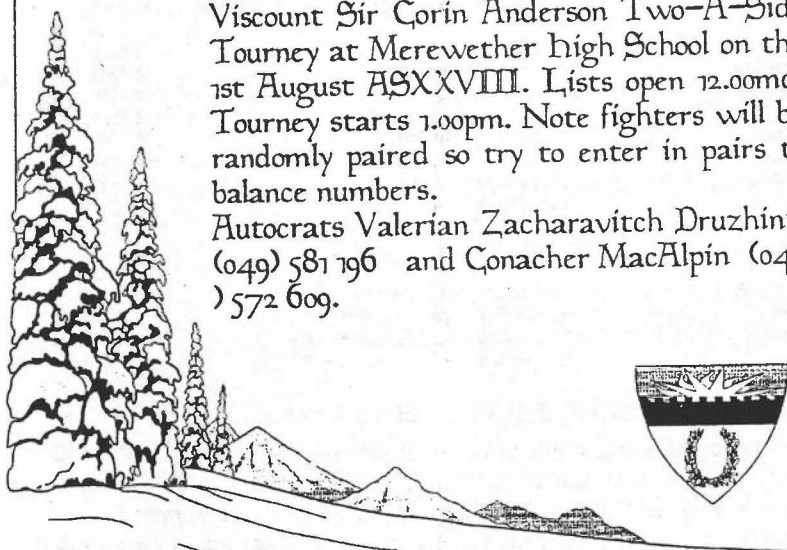 Viscount Sir Corin Anderson Two-A-Sid
Tourney at Merewether High School on th
1st August ASXXVIII. Lists open 12.00md
Tourney starts 1.00pm. Note fighters will b
randomly paired so try to enter in pairs t
balance numbers.
Autocrats Valerian Zacharavitch Druzhin
(049) 581 196 and Conacher MacAlpin (04
) 572 609.